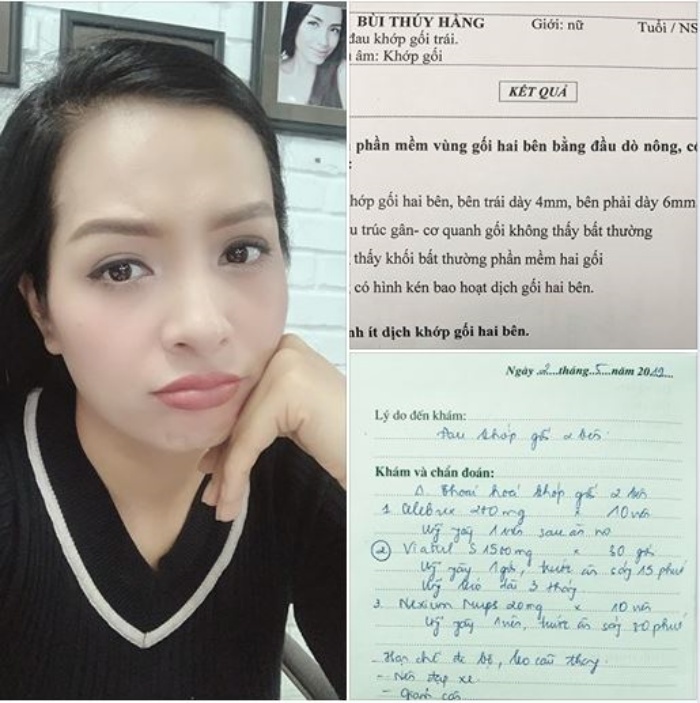 BÙI THÚY HẰNG Giới: nữ Tuổi / NS
đau khớp gối trái.
âm: Khớp gối
KẾT QUẢ
phần mềm vùng gối hai bên bằng đầu dò nông, có
:
hớp gối hai bên, bên trái dày 4mm, bên phải dày 6mm
u trúc gân- cơ quanh gối không thấy bất thường
thấy khối bất thường phần mềm hai gối
có hình kén bao hoạt dịch gối hai bên.
nh ít dịch khớp gối hai bên.
Ngày 2 tháng 5 năm 2019
Lý do đến khám:
Đau khớp gối 2 bên
Khám và chẩn đoán:
Δ. Thoái hoá khớp gối 2 bên
1. Celebrex 200mg x 10 viên
Uống ngày 1 viên sau ăn no
2 Viatril S 1500mg x 30 gói
Uống ngày 1 gói, trước ăn sáng 15 phút
Uống kéo dài 3 tháng
3. Nexium Mups 20mg x 10 viên
Uống ngày 1 viên, trước ăn sáng 30 phút
Hạn chế đi bộ, leo cầu thang.
- Nên đạp xe.
- Giảm cân